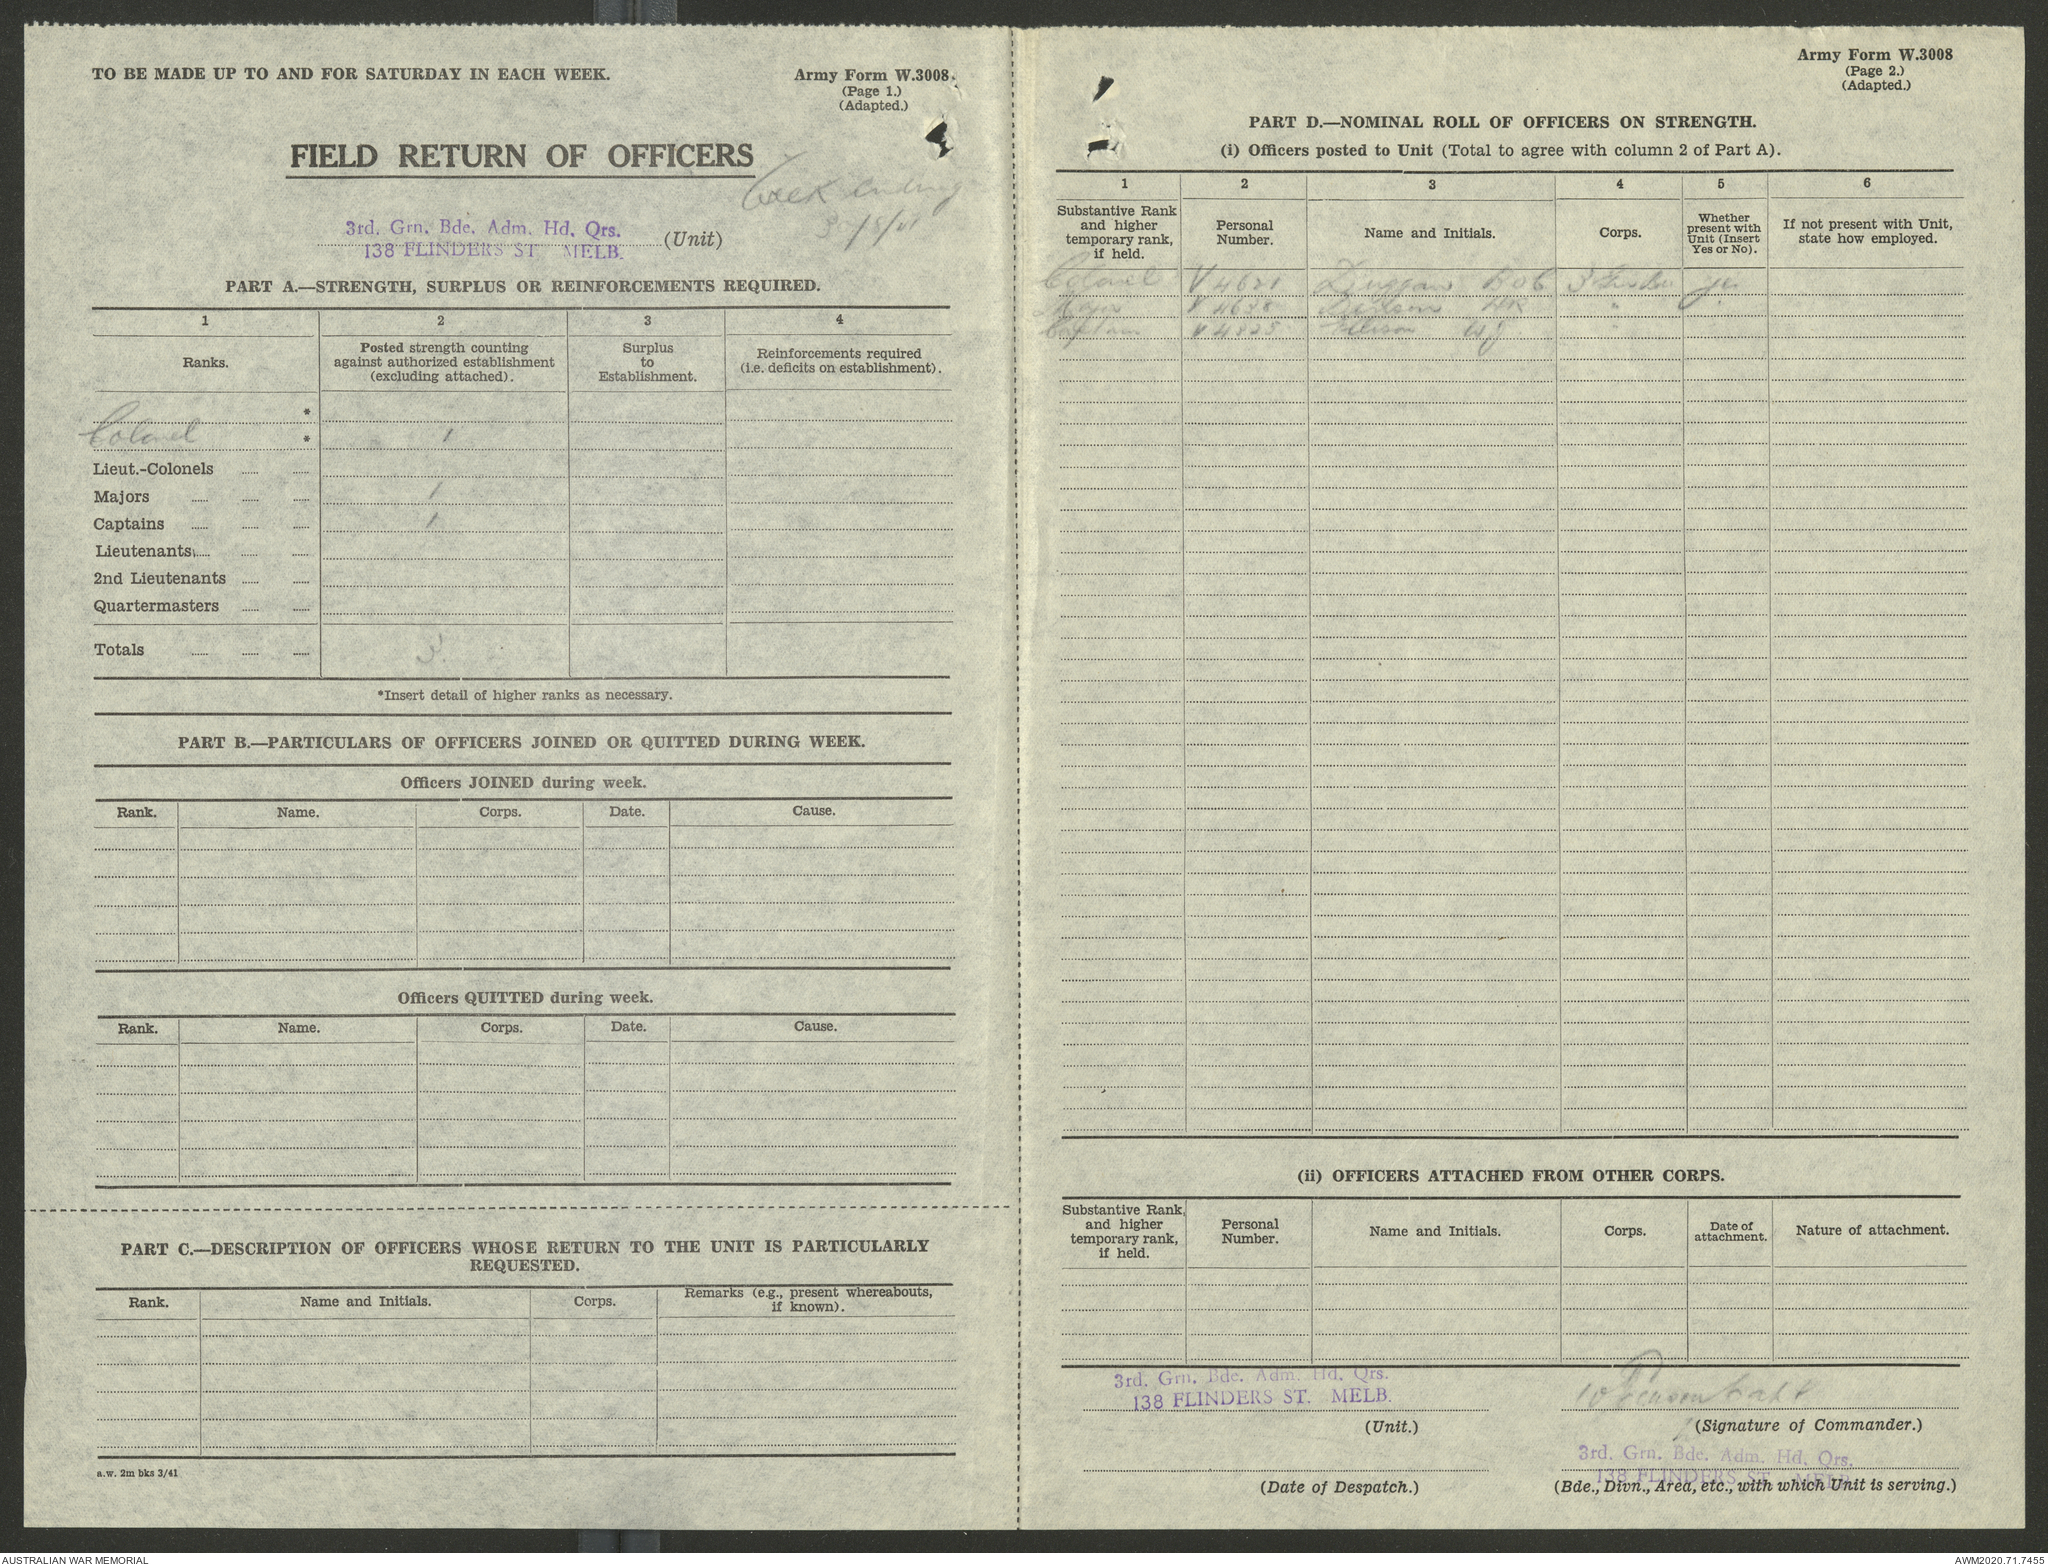 TO BE MADE UP TO AND FOR SATURDAY IN EACH WEEK.
Army Form W.3008.
(Page 1.)
(Adapted.)
FIELD RETURN OF OFFICERS
Week ending
3rd. Grn. Bde. Adm. Hd. Qrs.
138 FLINDERS ST MELB.
(Unit)
PART A.—STRENGTH, SURPLUS OR REINFORCEMENTS REQUIRED.
1 2 3 4
Ranks.
Posted strength counting against authorized establishment (excluding attached).
Surplus to Establishment.
Reinforcements required (i.e. deficits on establishment).
*
Colonel * 1
Lieut.-Colonels ...... ......
Majors ...... ...... ...... 1
Captains ...... ...... ...... 1
Lieutenants ...... ...... ......
2nd Lieutenants ...... ......
Quartermasters ...... ......
Totals ...... ...... ...... 3.
*Insert detail of higher ranks as necessary.
PART B.—PARTICULARS OF OFFICERS JOINED OR QUITTED DURING WEEK.
Officers JOINED during week.
Rank. Name. Corps. Date. Cause.
Officers QUITTED during week.
Rank. Name. Corps. Date. Cause.
PART C.—DESCRIPTION OF OFFICERS WHOSE RETURN TO THE UNIT IS PARTICULARLY
REQUESTED.
Rank. Name and Initials. Corps. Remarks (e.g., present whereabouts, if known).
a.w. 2m bks 3/41
Army Form W.3008
(Page 2.)
(Adapted.)
PART D.—NOMINAL ROLL OF OFFICERS ON STRENGTH.
(i) Officers posted to Unit (Total to agree with column 2 of Part A).
1 2 3 4 5 6
Substantive Rank and higher temporary rank, if held.
Personal Number.
Name and Initials.
Corps.
Whether present with Unit (Insert Yes or No).
If not present with Unit, state how employed.
Colonel Duggan yes
Major "
Captain W J "
(ii) OFFICERS ATTACHED FROM OTHER CORPS.
Substantive Rank, and higher temporary rank, if held.
Personal Number.
Name and Initials.
Corps.
Date of attachment.
Nature of attachment.
3rd. Grn. Bde. Adm. Hd. Qrs.
138 FLINDERS ST. MELB.
(Unit.)
Capt
(Signature of Commander.)
3rd. Grn. Bde. Adm. Hd. Qrs.
138 FLINDERS ST MELB.
(Date of Despatch.)
(Bde., Divn., Area, etc., with which Unit is serving.)
AUSTRALIAN WAR MEMORIAL
AWM2020.71.7455